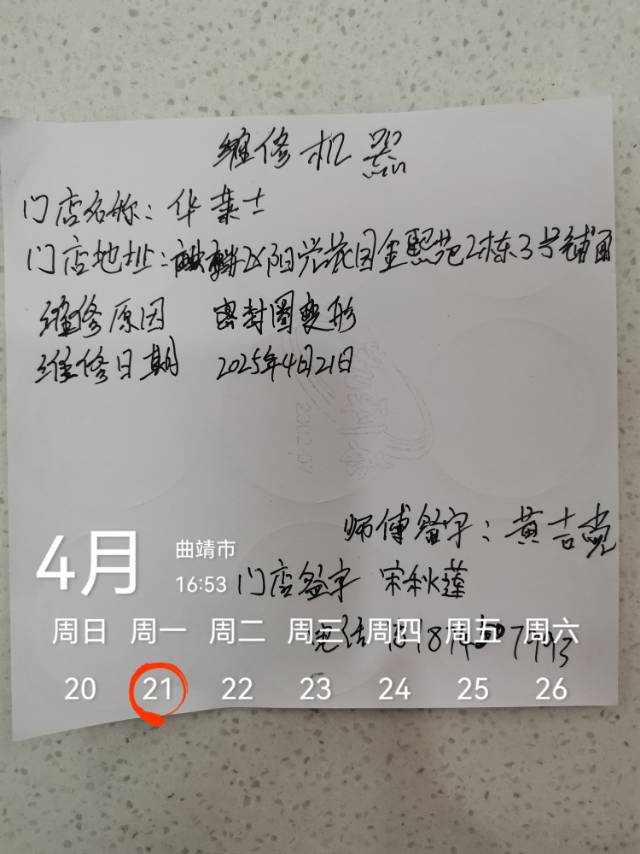 维修机器
门店名称：华莱士
门店地址：麒麟区阳光花园金熙苑2栋3号铺面
维修原因 密封圈变形
维修日期 2025年4月21日
师傅签字：黄吉党
4月
曲靖市
16:53
门店签字 宋秋莲
周日 周一 周二 周三 周四 周五 周六
电话
20 21 22 23 24 25 26